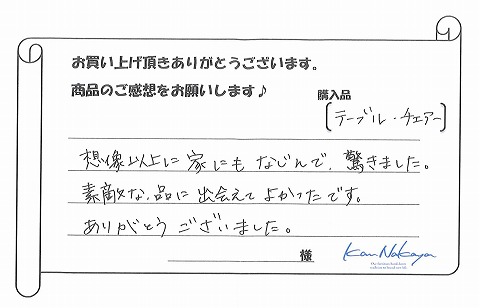 お買い上げ頂きありがとうございます。
商品のご感想をお願いします♪
購入品
[テーブル・チェアー]
想像以上に家にもなじんで、驚きました。
素敵な品に出会えてよかったです。
ありがとうございました。
様
Kan Nakaya